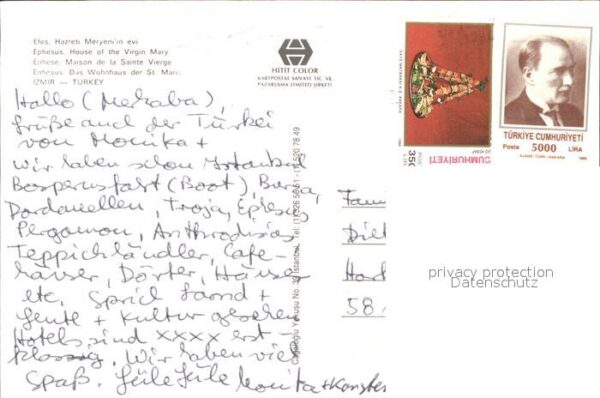 Efes. Hazreti Meryem'in evi
Ephesus. House of the Virgin Mary
Ephèse. Maison de la Sainte Vierge
Ephesus. Das Wohnhaus der St Mari.
İZMİR — TURKEY
HİTİT COLOR
KARTPOSTAL SANAYİ TİC. VE
PAZARLAMA LİMİTED ŞİRKETİ
TÜRKİYE CUMHURİYETİ
Posta 5000 LİRA
CUMHURİYETİ
350
Hallo (Mehaba),
Grüße aus der Türkei
von Monika +
Wir haben schon Istanbul
Bosperusfahrt (Boot), Bursa,
Dardanellen, Troja, Ephesus
Pergamon, Aphrodisias
Teppichhändler, Cafe-
häuser, Dörfer, Häuser
etc. sprich Land +
Leute + Kultur gesehen
Hotels sind xxxx erst-
klassig. Wir haben viel
Spaß. Güle Güle Monika + Konsten
Fam
Diet
Hart
58
privacy protection
Datenschutz